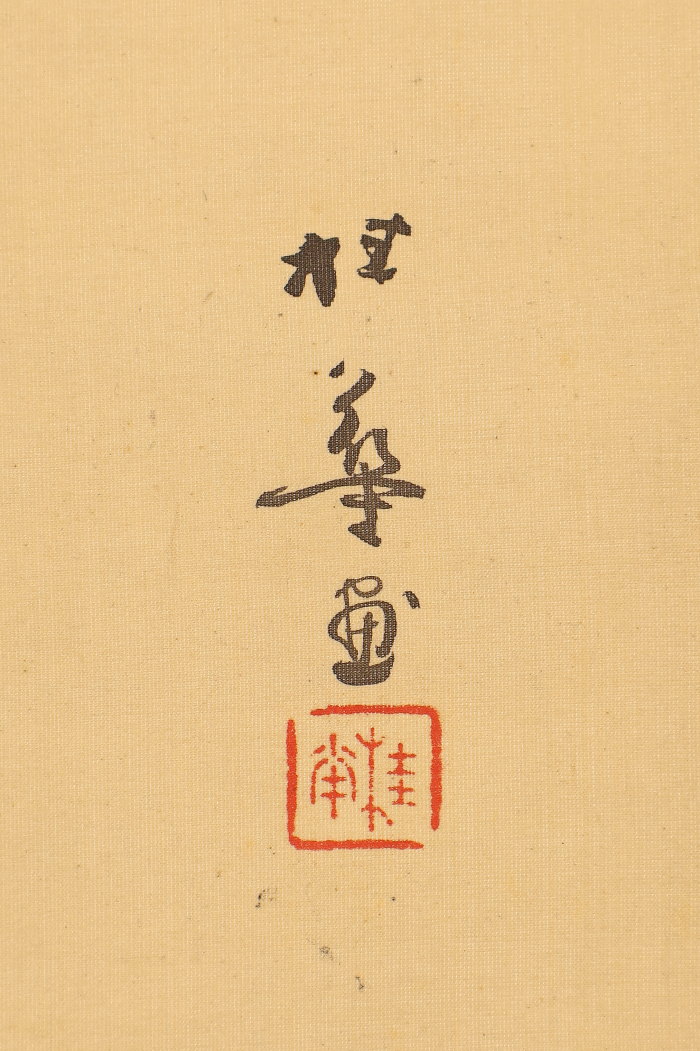 桂
華
画
桂